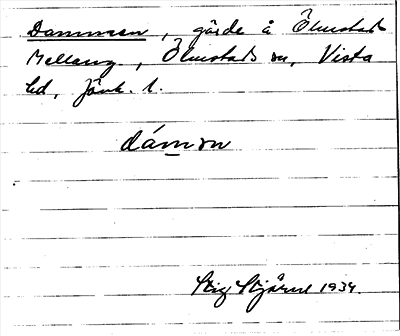 Dammen, gärde å Ölmstads
Mellang., Ölmstads sn, Vista
hd, Jönk. l.
dámɷn
Stig Stjärne 1934.